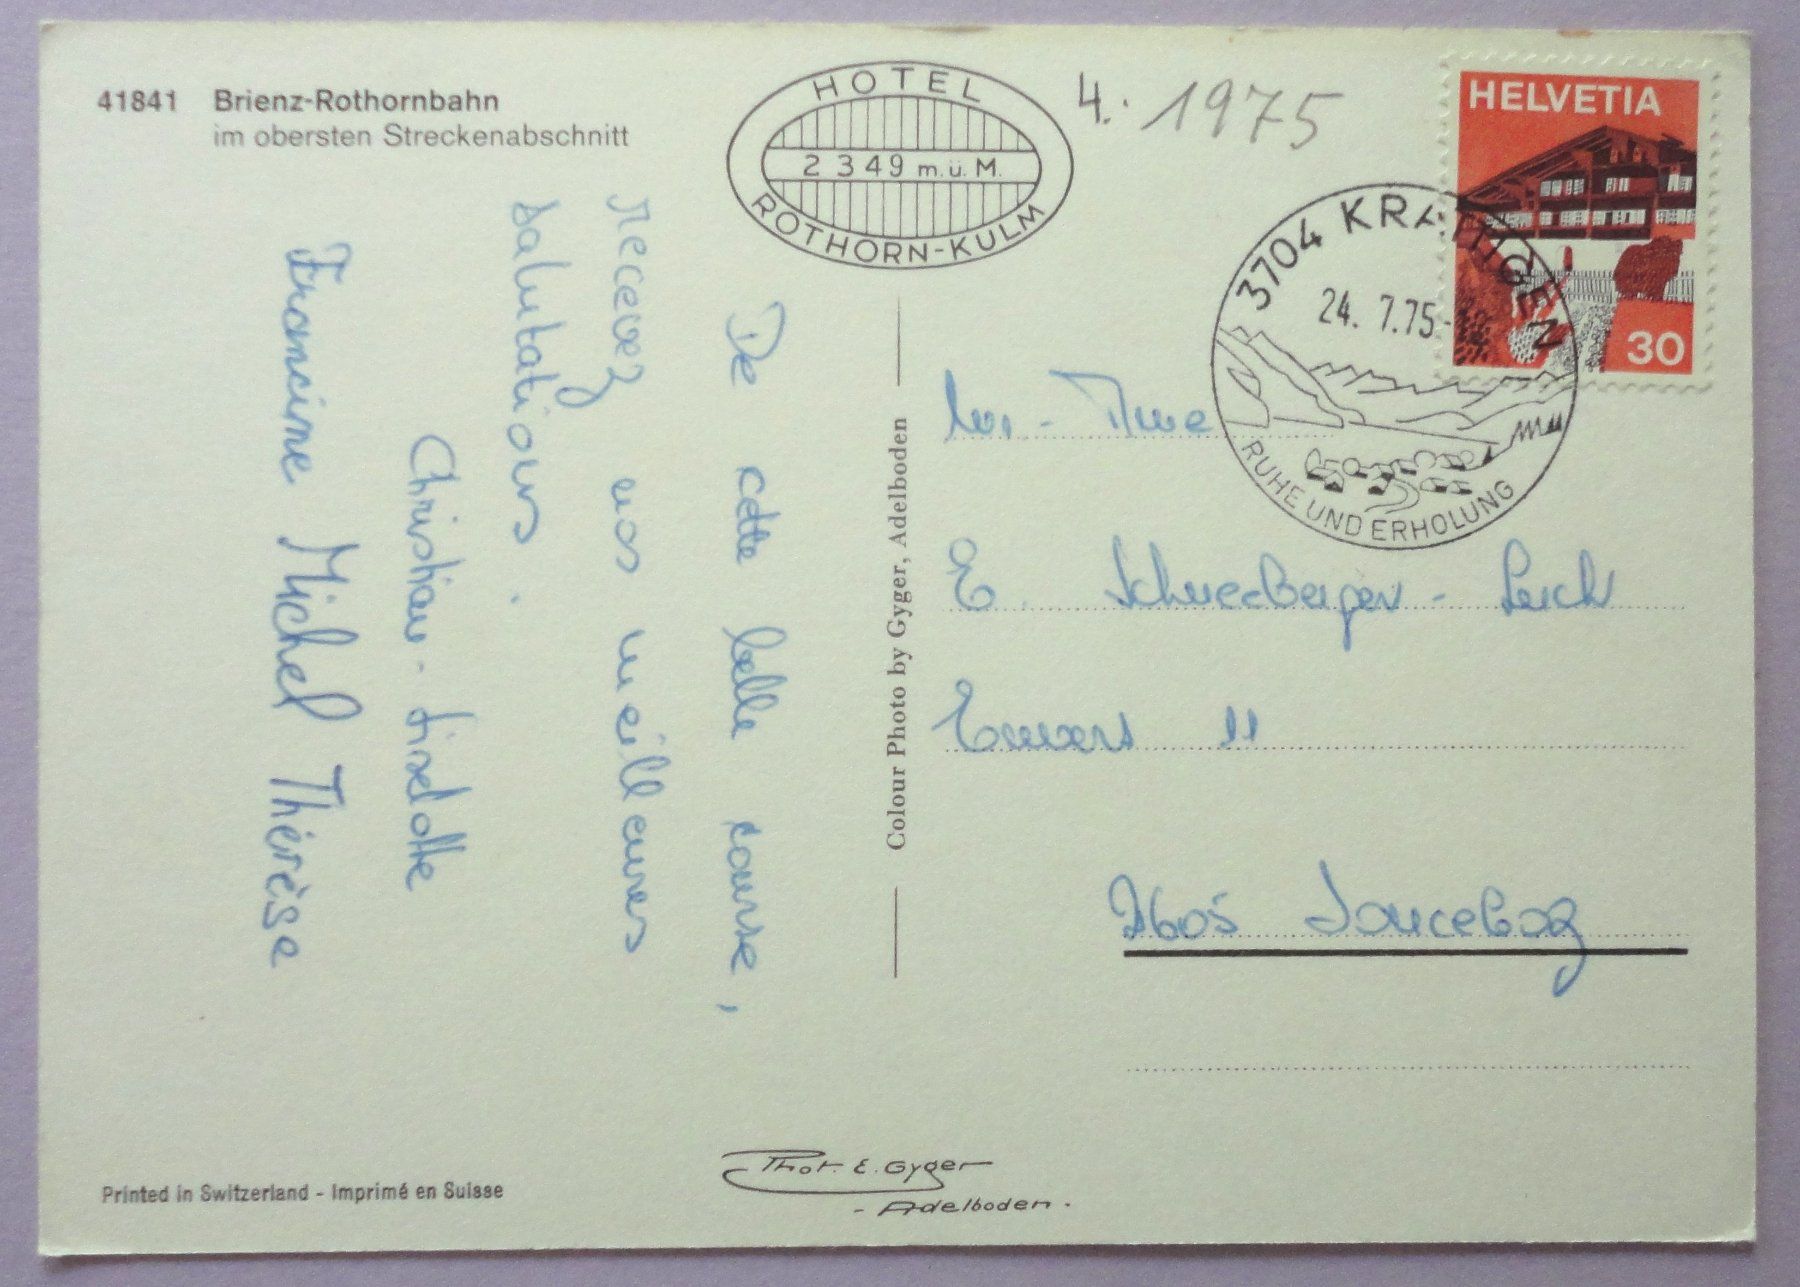 41841 Brienz-Rothornbahn
im obersten Streckenabschnitt
HOTEL
2349 m.ü.M.
ROTHORN-KULM
4. 1975
HELVETIA
30
3704 KRATTIGEN
24. 7.75-
RUHE UND ERHOLUNG
De cette belle course,
recevez nos meilleures
salutations.
Christian - Liselotte
Francine Michel Thérèse
Colour Photo by Gyger, Adelboden
M. - Mme
E. Schneeberger -
Envers 11
2605 Sonceboz
Printed in Switzerland - Imprimé en Suisse
Phot. E. Gyger
- Adelboden -